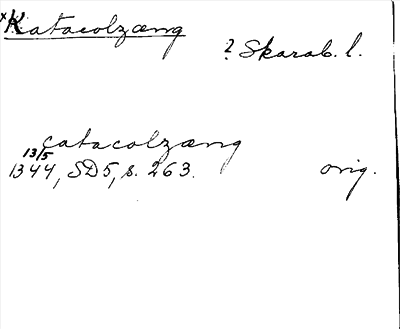 x Katacolzæng
? Skarab. l.
catacolzæng
13/5
1344, SD5, s. 263. orig.